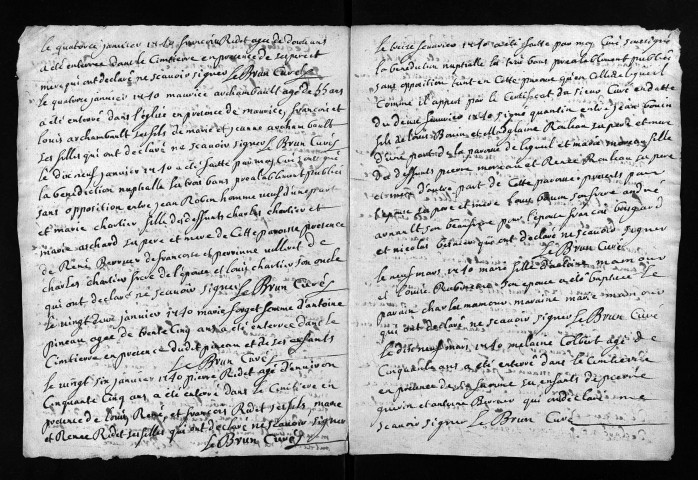 le quatorze janvier 1740 françois Ridet agé de douze ans
a été enterré dans le Cimtierre en presence de ses pere et
mere qui ont declaré ne scavoir signer Le Brun Curé
le quatorze janvier 1740 maurice archambault agé de 55 ans
a été enterré dans l'église en presence de maurice, françois et
louis archambault ses fils de marie et jeanne archambault
ses filles qui ont declaré ne scavoir signer Le Brun Curé
le dix neuf janvier 1740 a été faitte par moy Curé
la benediction nuptialle les trois bans prealablement publiés
sans opposition entre jean Robin homme veuf d'une part
et marie charlier fille des deffunts charles charlier et
marie aschard ses pere et mere de Cette paroisse presence
de René Berruer de françoise et perrinne
charles charlier frere de l'epouse et louis charlier son oncle
qui ont declaré ne scavoir signer Le Brun Curé
le vingt deux janvier 1740 marie forget femme d'antoine
pineau agée de trente Cinq ans a été enterrée dans le
Cimtierre en presence dudit pineau et de ses enfants
Le Brun Curé
le vingt six janvier 1740 pierre Ridet agé d'environ
Cinquante Cinq ans a été enterré dans le Cimtierre en
presence de louis, René, et françois Ridet ses fils marie
et Renée Ridet ses filles qui ont declaré ne scavoir signer
Le Brun Curé
le seize fevrier 1740 a été faitte par moy Curé soussigné
la benediction nuptialle les trois bans prealablement publiés
sans opposition tant en Cette paroisse qu'en Celle de
Comme il appert par le Certificat du sieur Curé en datte
du fevrier 1740 signé quantin entre jean
fils de louis et magdelaine Rouleau ses pere et mere
d'une part de la paroisse de et marie moreau fille
des deffunts pierre moreau et Renée Rouleau ses pere
et mere d'autre part de Cette paroisse presents pour
l'epoux ses pere et mere louis son frere andré
arnault son beaufrere pour l'epouse françois
et nicolas qui ont declaré ne scavoir signer
Le Brun Curé
le neuf mars 1740 marie fille d'antoine mamour
et louise Rabineau son epouse a été baptisée le
parain charles mamour maraine marie mamour
qui ont declaré ne scavoir signer Le Brun Curé
le dix neuf mars 1740 Colbert agé de
Cinquante ans a été enterré dans le Cimtierre
en presence de sa femme ses enfants de pierre
et antoine qui ont declaré ne
scavoir signer Le Brun Curé